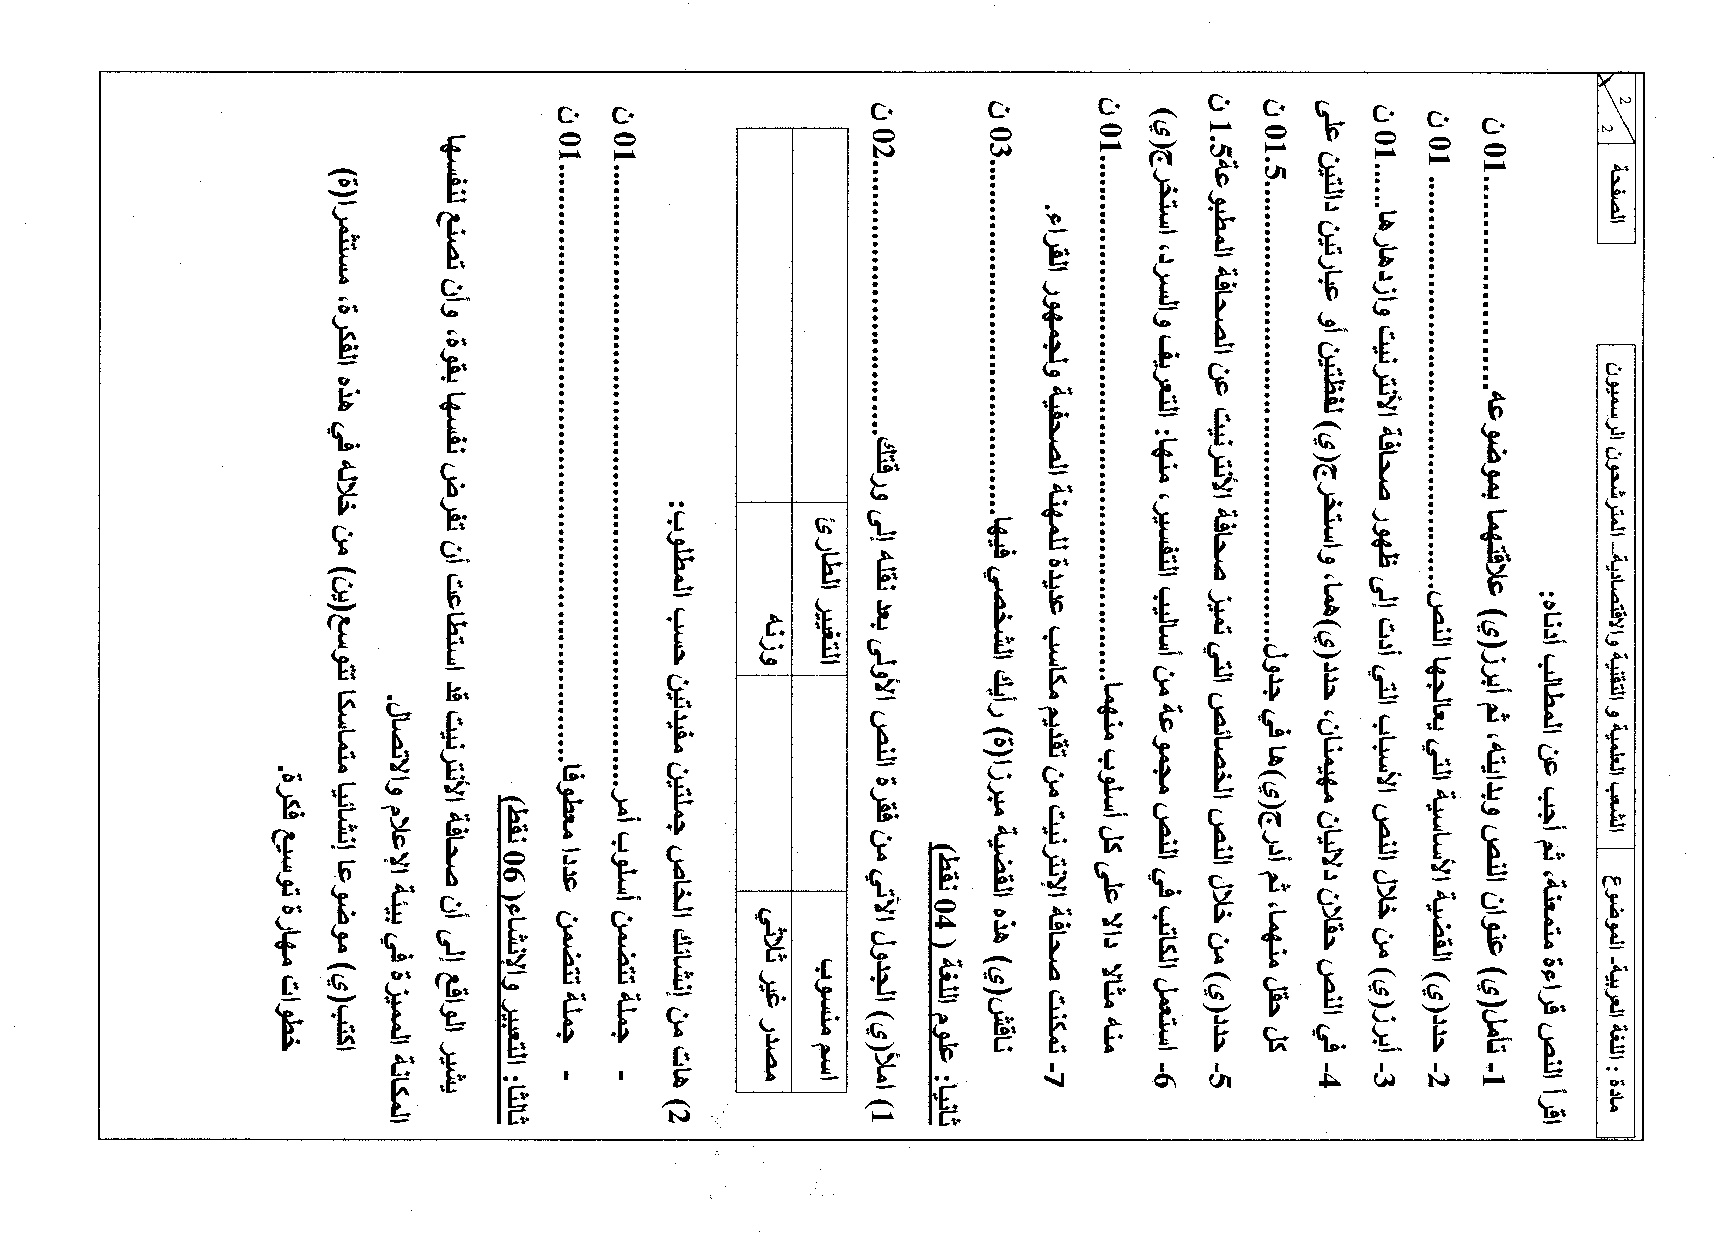 2 2 الصفحة الشعب العلمية و التقنية والاقتصادية– المترشحون الرسميون مادة : اللغة العربية- الموضوع
اقرأ النص قراءة متمعنة، ثم أجب عن المطالب أدناه:
1- تأمل(ي) عنوان النص وبدايته، ثم أبرز(ي) علاقتهما بموضوعه..............................01 ن
2- حدد(ي) القضية الأساسية التي يعالجها النص..............................................01 ن
3- أبرز(ي) من خلال النص الأسباب التي أدت إلى ظهور صحافة الأنترنيت وازدهارها.....01 ن
4- في النص حقلان دلاليان مهيمنان، حدد(ي)هما، واستخرج(ي) لفظتين أو عبارتين دالتين على
كل حقل منهما، ثم أدرج(ي)ها في جدول..............................................01.5 ن
5- حدد(ي) من خلال النص الخصائص التي تميز صحافة الأنترنيت عن الصحافة المطبوعة1.5 ن
6- استعمل الكاتب في النص مجموعة من أساليب التفسير، منها: التعريف والسرد، استخرج(ي)
منه مثالا دالا على كل أسلوب منهما..............................................01 ن
7- تمكنت صحافة الإنترنيت من تقديم مكاسب عديدة للمهنة الصحفية ولجمهور القراء.
ناقش(ي) هذه القضية مبرزا(ة) رأيك الشخصي فيها..............................................03 ن
ثانيا: علوم اللغة ( 04 نقط)
1) املأ(ي) الجدول الآتي من فقرة النص الأولى بعد نقله إلى ورقتك..............................02 ن
اسم منسوب التغيير الطارئ
مصدر غير ثلاثي وزنه
2) هات من إنشائك الخاص جملتين مفيدتين حسب المطلوب:
- جملة تتضمن أسلوب أمر..............................................01 ن
- جملة تتضمن عددا معطوفا..............................................01 ن
ثالثا: التعبير والإنشاء( 06 نقط)
يشير الواقع إلى أن صحافة الأنترنيت قد استطاعت أن تفرض نفسها بقوة، وأن تصنع لنفسها
المكانة المميزة في بيئة الإعلام والاتصال.
اكتب(ي) موضوعا إنشائيا متماسكا تتوسع(ين) من خلاله في هذه الفكرة، مستثمرا(ة)
خطوات مهارة توسيع فكرة.